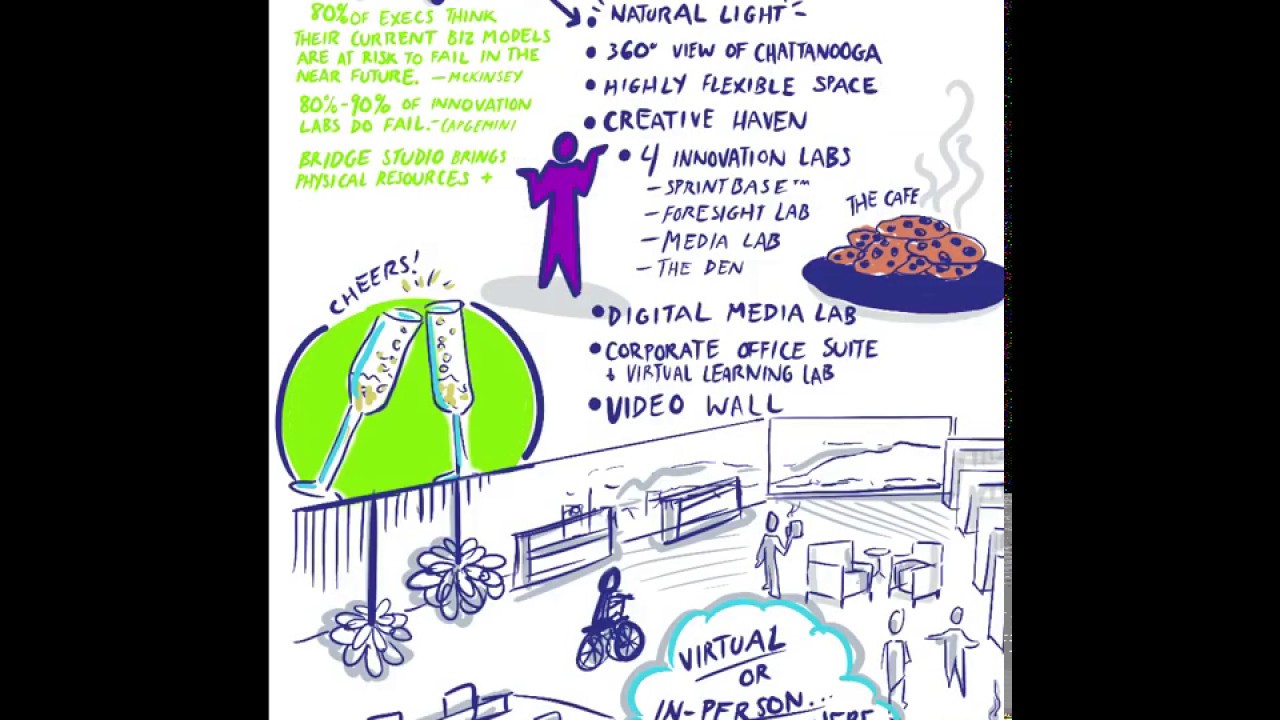 80% OF EXECS THINK
THEIR CURRENT BIZ MODELS
ARE AT RISK TO FAIL IN THE
NEAR FUTURE. - MCKINSEY
80%-90% OF INNOVATION
LABS DO FAIL. - CAPGEMINI
BRIDGE STUDIO BRINGS
PHYSICAL RESOURCES +
• NATURAL LIGHT
• 360° VIEW OF CHATTANOOGA
• HIGHLY FLEXIBLE SPACE
• CREATIVE HAVEN
• 4 INNOVATION LABS
- SPRINTBASE™
- FORESIGHT LAB
- MEDIA LAB
- THE DEN
THE CAFE
• DIGITAL MEDIA LAB
• CORPORATE OFFICE SUITE
+ VIRTUAL LEARNING LAB
• VIDEO WALL
CHEERS!
VIRTUAL
OR
IN-PERSON...